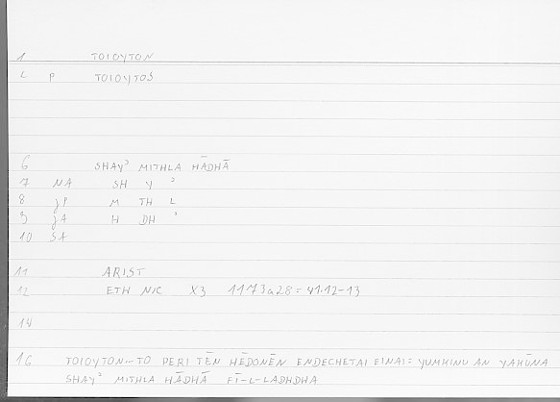 1 TOIOYTON
L P TOIOYTOS
6 SHAYʾ MITHLA HĀDHĀ
7 NA SH Y ʾ
8 JP M TH L
9 JA H DH ʾ
10 SA
11 ARIST
12 ETH NIC X3 1173a28 = 41.12-13
14
16 TOIOYTON - TO PERI TĒN HĒDONĒN ENDECHETAI EINAI = YUMKINU AN YAKŪNA
SHAYʾ MITHLA HĀDHĀ FĪ-L-LADHDHA